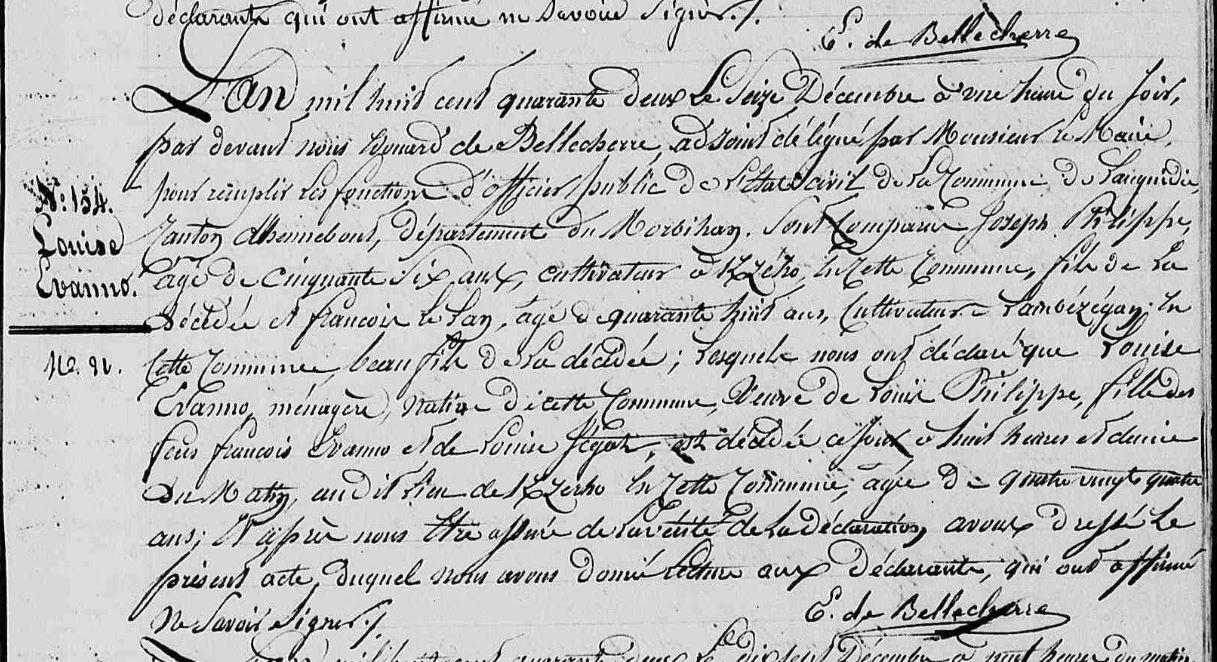 déclarants qui ont affirmé ne Savoir Signer ./.
E. de Bellecherre
N° 154.
Louise
Evanno.
L'an mil huit cent quarante deux Le Seize Décembre à une heure du Soir,
par devant nous Edouard de Bellecherre, adjoint délégué par Monsieur le Maire,
pour remplir les fonctions d'officier public de l'état civil de la Commune de Languidic,
Canton d'hennebont, département du Morbihan. Sont Comparus Joseph Philippe,
âgé de cinquante Six ans, cultivateur à en Cette Commune, fils de La
décédée et françois le Pan, âgé de quarante huit ans, Cultivateur à en
Cette Commune, beau fils de La décédée; lesquels nous ont déclaré que Louise
Evanno, ménagère, native de cette Commune, Veuve de Louis Philippe, fille des
feus françois Evanno et de Louise Jégat, est décédée ce Jour à huit heures et demie
du Matin, audit lieu de en Cette Commune, âgée de quatre vingt quatre
ans; Et après nous être assuré de la vérité de La déclaration, avons Dressé Le
présent acte, duquel nous avons donné lecture aux Déclarants, qui ont affirmé
Ne Savoir Signer ./.
E. de Bellecherre
L'an mil huit cent quarante deux Le dix sept Décembre à huit heures du matin